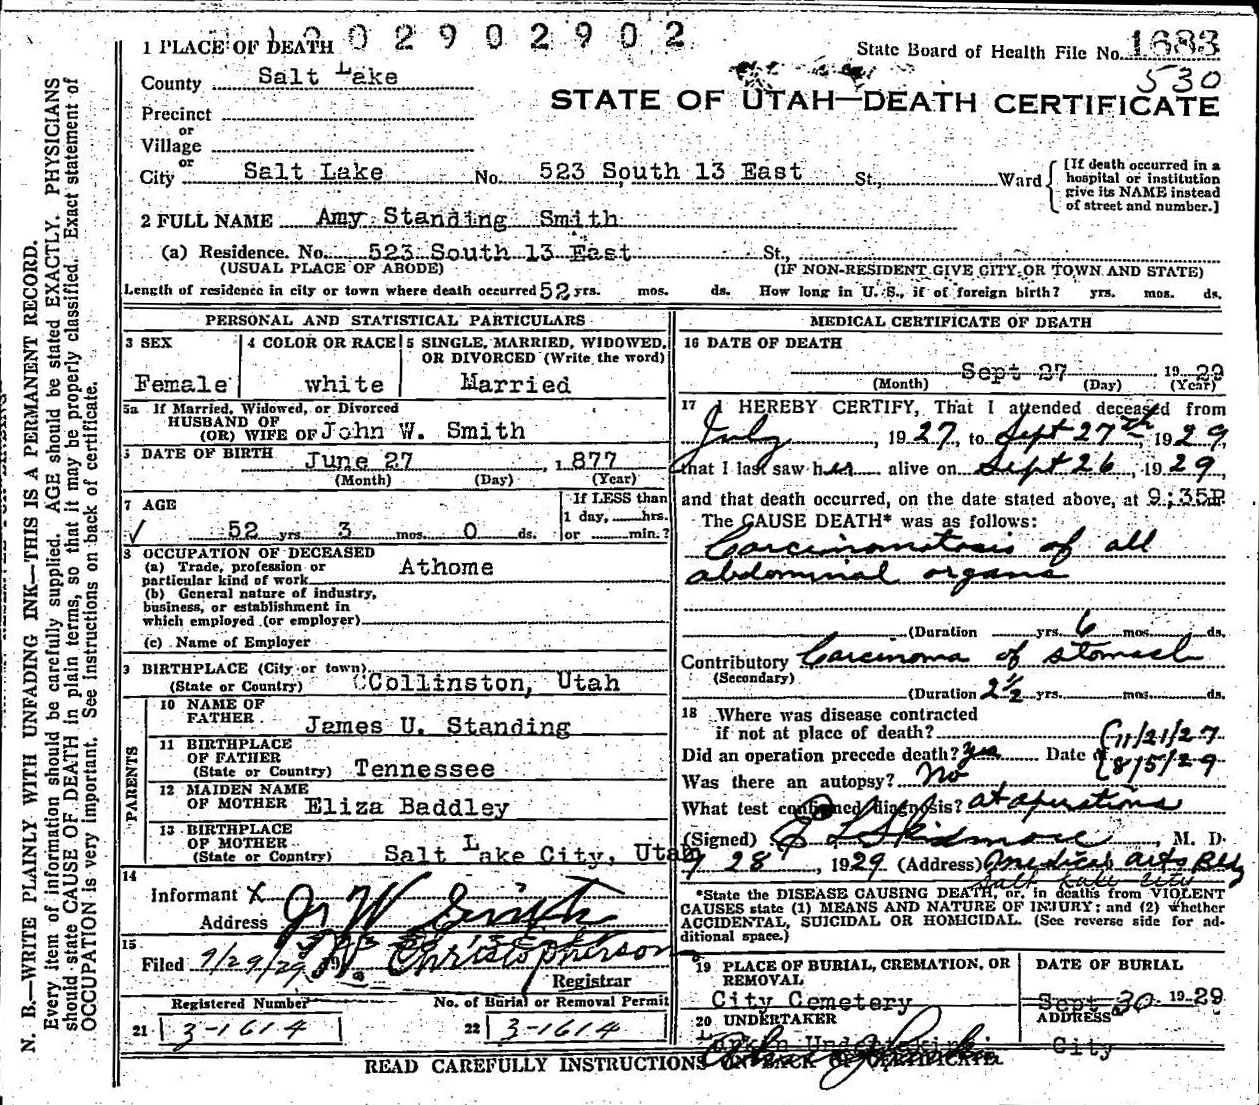 02902902
1 PLACE OF DEATH
State Board of Health File No. 1683
530
County Salt Lake
STATE OF UTAH—DEATH CERTIFICATE
Precinct
or
Village
or
City Salt Lake No. 523 South 13 East St., Ward
[If death occurred in a hospital or institution give its NAME instead of street and number.]
2 FULL NAME Amy Standing Smith
(a) Residence. No. 523 South 13 East St.,
(USUAL PLACE OF ABODE) (IF NON-RESIDENT GIVE CITY OR TOWN AND STATE)
Length of residence in city or town where death occurred 52 yrs. mos. ds. How long in U. S., if of foreign birth? yrs. mos. ds.
PERSONAL AND STATISTICAL PARTICULARS
3 SEX
Female
4 COLOR OR RACE
white
5 SINGLE, MARRIED, WIDOWED, OR DIVORCED (Write the word)
Married
5a If Married, Widowed, or Divorced
HUSBAND OF
(OR) WIFE OF John W. Smith
DATE OF BIRTH June 27, 1877
(Month) (Day) (Year)
7 AGE
✓ 52 yrs 3 mos. 0 ds.
If LESS than
1 day, hrs.
or min.?
8 OCCUPATION OF DECEASED
(a) Trade, profession or
particular kind of work Athome
(b) General nature of industry,
business, or establishment in
which employed (or employer)
(c) Name of Employer
9 BIRTHPLACE (City or town)
(State or Country) Collinston, Utah
PARENTS
10 NAME OF
FATHER James U. Standing
11 BIRTHPLACE
OF FATHER
(State or Country) Tennessee
12 MAIDEN NAME
OF MOTHER Eliza Baddley
13 BIRTHPLACE
OF MOTHER
(State or Country) Salt Lake City, Utah
14
Informant X J W Smith
Address
15
Filed 9/29/29 Christopherson
Registrar
Registered Number
21 3-1614
No. of Burial or Removal Permit
22 3-1614
MEDICAL CERTIFICATE OF DEATH
16 DATE OF DEATH
Sept 27 19 29
(Month) (Day) (Year)
17 I HEREBY CERTIFY, That I attended deceased from
July, 1927, to Sept 27th, 1929,
that I last saw her alive on Sept 26, 1929,
and that death occurred, on the date stated above, at 9:35P m.
The CAUSE DEATH* was as follows:
Carcinomatosis of all
abdominal organs
(Duration yrs. 6 mos. ds.
Contributory Carcinoma of stomach
(Secondary)
(Duration 2½ yrs. mos. ds.
18 Where was disease contracted
if not at place of death?
Did an operation precede death? yes Date of 11/21/27
8/5/29
Was there an autopsy? No
What test confirmed diagnosis? at operations
(Signed) E L Skidmore, M. D
9 28, 1929 (Address) Medical Arts Bldg
Salt Lake City
*State the DISEASE CAUSING DEATH, or, in deaths from VIOLENT
CAUSES state (1) MEANS AND NATURE OF INJURY; and (2) whether
ACCIDENTAL, SUICIDAL OR HOMICIDAL. (See reverse side for ad-
ditional space.)
19 PLACE OF BURIAL, CREMATION, OR
REMOVAL
City Cemetery
DATE OF BURIAL
Sept 30 1929
20 UNDERTAKER
ADDRESS
City
READ CAREFULLY INSTRUCTIONS ON BACK OF CERTIFICATE.
N. B.—WRITE PLAINLY WITH UNFADING INK—THIS IS A PERMANENT RECORD.
Every item of information should be carefully supplied. AGE should be stated EXACTLY. PHYSICIANS
should state CAUSE OF DEATH in plain terms, so that it may be properly classified. Exact statement of
OCCUPATION is very important. See instructions on back of certificate.